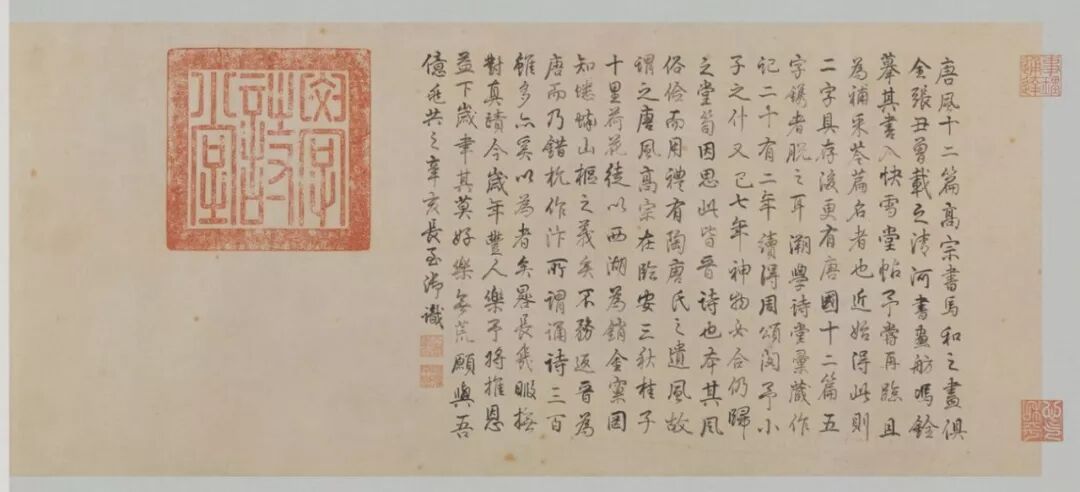 唐風十二篇高宗書馬和之畫俱
全張丑曾載之清河書畫舫馮銓
摹其書入快雪堂帖予嘗再臨且
為補采苓篇名者也近始得此則
二字具存後更有唐國十二篇五
字鐫者脫之耳溯學詩堂彙藏作
記二十有二年續得周頌閔予小
子之什又已七年神物合仍歸
之堂筍因思此皆晉詩也本其風
俗儉而用禮有陶唐氏之遺風故
謂之唐風高宗在臨安三秋桂子
十里荷花徒以西湖為銷金窠罔
知蟋蟀山樞之義矣不務返晉為
唐而乃錯杭作汴所謂誦詩三百
雖多亦奚以為者矣晷長幾暇撫
對真蹟今歲年豐人樂予將推恩
益下歲聿其莫好樂無荒願與吾
億兆共之辛亥長至御識